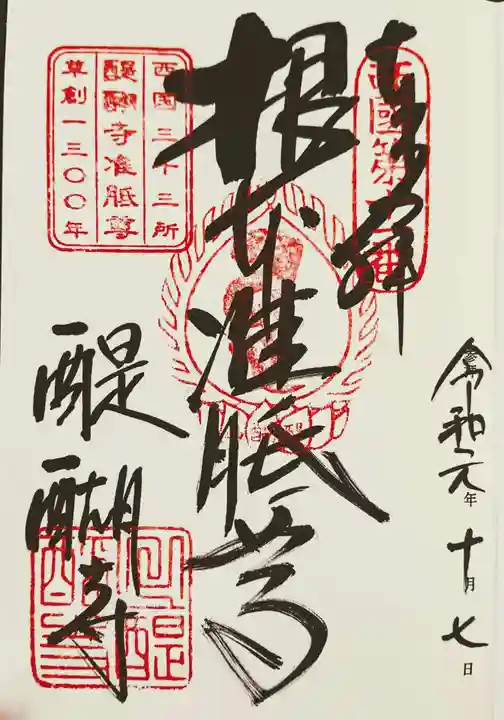 令和元年十月七日
奉拝
西國第十一番
根本准胝尊
西国三十三所
醍醐寺准胝尊
草創一三〇〇年
醍醐寺